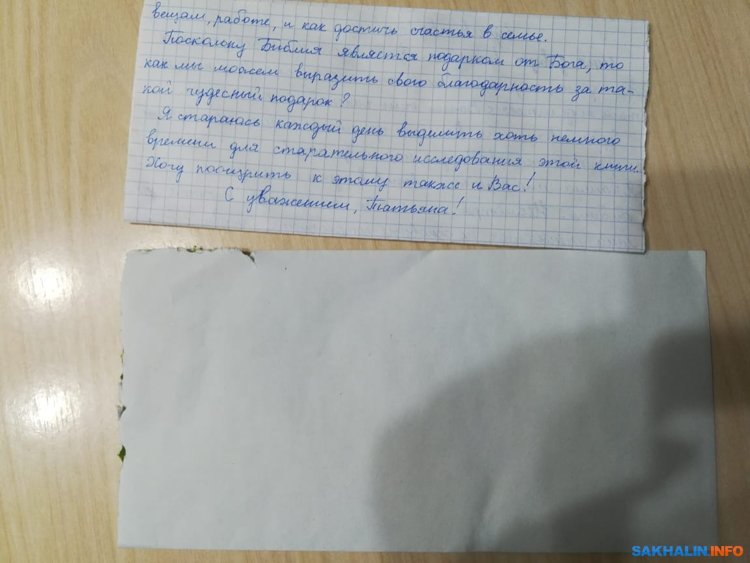 вещам, работе, и как достичь счастья в семье.
Посколоку Библия является подарком от Бога, то
как мы можем выразить свою благодарность за та-
кой чудесный подарок?
Я стараюсь каждый день выделить хоть немного
времени для старательного исследования этой книги.
Хочу поощрить к этому также и Вас!
С уважением, Татьяна!
SAKHALIN.INFO